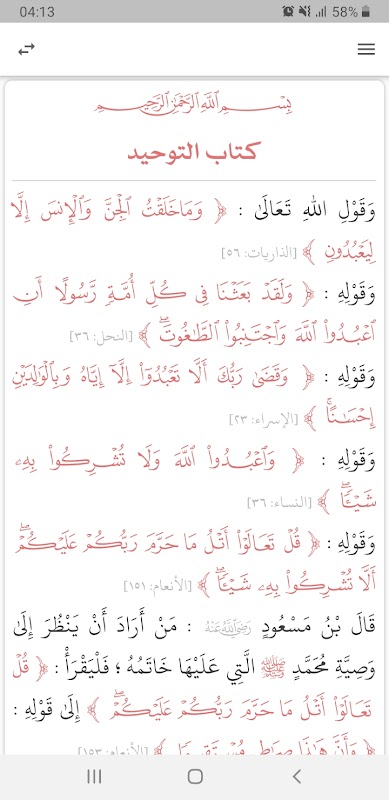 04:13 58%
بِسْمِ ٱللَّهِ ٱلرَّحْمَٰنِ ٱلرَّحِيمِ
كتاب التوحيد
وَقَوْلِ اللهِ تَعَالَىٰ : ﴿ وَمَا خَلَقْتُ ٱلْجِنَّ وَٱلْإِنسَ إِلَّا
لِيَعْبُدُونِ ﴾ [الذاريات: ٥٦]
وَقَوْلِهِ : ﴿ وَلَقَدْ بَعَثْنَا فِى كُلِّ أُمَّةٍ رَّسُولًا أَنِ
ٱعْبُدُوا۟ ٱللَّهَ وَٱجْتَنِبُوا۟ ٱلطَّـٰغُوتَ ۖ ﴾ [النحل: ٣٦]
وَقَوْلِهِ : ﴿ وَقَضَىٰ رَبُّكَ أَلَّا تَعْبُدُوٓا۟ إِلَّآ إِيَّاهُ وَبِٱلْوَٰلِدَيْنِ
إِحْسَـٰنًا ۚ ﴾ [الإسراء: ٢٣]
وَقَوْلِهِ : ﴿ وَٱعْبُدُوا۟ ٱللَّهَ وَلَا تُشْرِكُوا۟ بِهِۦ
شَيْـًٔا ۖ ﴾ [النساء: ٣٦]
وَقَوْلِهِ : ﴿ قُلْ تَعَالَوْا۟ أَتْلُ مَا حَرَّمَ رَبُّكُمْ عَلَيْكُمْ ۖ
أَلَّا تُشْرِكُوا۟ بِهِۦ شَيْـًٔا ۖ ﴾ [الأنعام: ١٥١]
قَالَ بْنُ مَسْعُودٍ رَضِيَ اللَّهُ عَنْهُ : مَنْ أَرَادَ أَنْ يَنْظُرَ إِلَىٰ
وَصِيَّةِ مُحَمَّدٍ ﷺ الَّتِي عَلَيْهَا خَاتَمُهُ ؛ فَلْيَقْرَأْ : ﴿ قُلْ
تَعَالَوْا۟ أَتْلُ مَا حَرَّمَ رَبُّكُمْ عَلَيْكُمْ ۖ ﴾ إِلَىٰ قَوْلِهِ :
﴿ وَأَنَّ هَـٰذَا صِرَٰطِى مُسْتَقِيمًا ﴾ [الأنعام: ١٥٣]